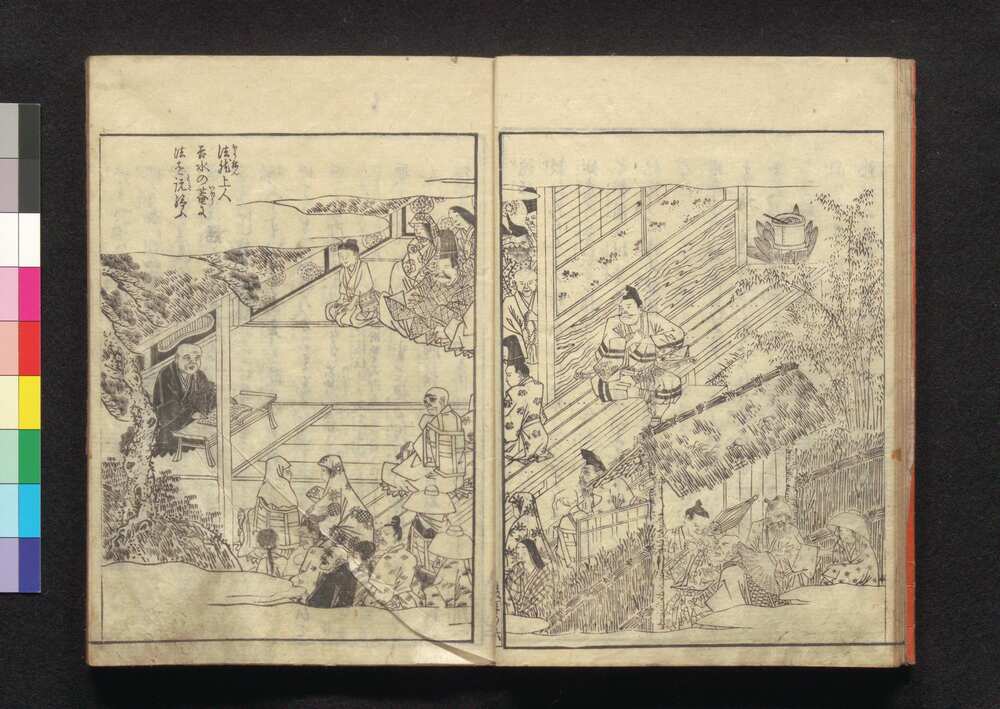 法然上人
吉水の菴に
法を説給ふ